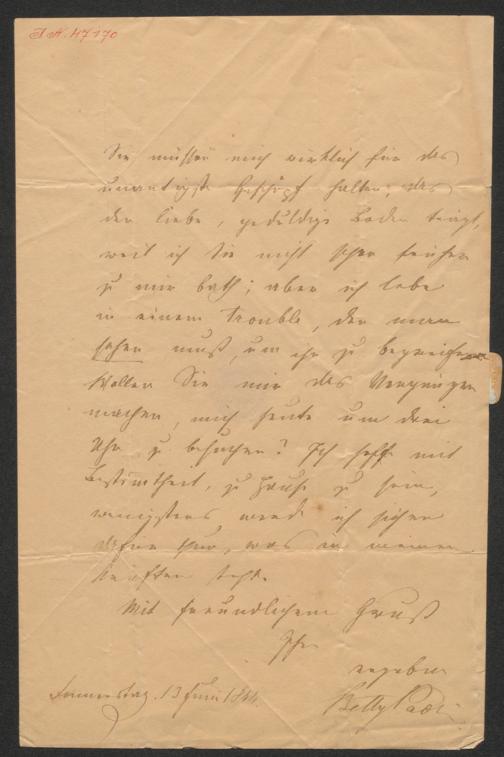 I.N. 47170
Sie müssen mich wirklich für das
unartigste Geschöpf halten, das
der liebe, geduldige Boden trägt,
weil ich Sie nicht schon früher
zu mir bath; aber ich lebe
in einem Trouble, den man
sehen muß, um ihn zu begreifen.
Wollen Sie mir das Vergnügen
machen, mich heute um drei
Uhr zu besuchen? Ich hoffe mit
Bestimtheit, zu Hause zu sein,
wenigstens werde ich sicher
dafür thun, was in meinen
Kräften steht.
Mit freundlichem Gruß
Ihre
ergebne
Betty Paoli
Donnerstag. 13 Juni